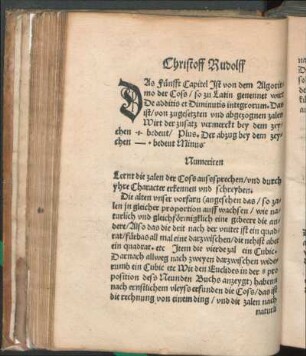 Christoff Rudolff
DAs Fünfft Capitel Ist von dem Algorith
mo der Coss / so zu Latin genennet wirt
De additis et Diminutis integrorum. Das
ist / von zugesetzten und abgezognen zalen
Wirt der zusatz vermerckt bey dem zey-
chen + bedeut / Plus. Der abzug bey dem zey-
chen — bedeut Minus
Numeriren
Lernt die zalen der Coss aussprechen / und durch
yhre Character erkennen und schreyben.
Die alten unser vorfarn (angesehen das / so za-
len in gleicher proportion auff wachsen / wie na-
türlich und gleichförmigklich eine gebere die an-
dere / Also das die drit nach der unitet ist ein quad-
rat / fürbas all mal eine darzwischen / die nehist aber
ein quadrat. etc Item die vierde zal ein Cubic.
Darnach allweg nach zweyen darzwischen wide
rumb ein Cubic etc Wie den Euclides in der 8 pro
position des Neunden Buchs anzeygt) haben
nach ernstlichem vleyss erfunden die Coss / das ist
die rechnung von einem ding / und die zalen nach
naturli